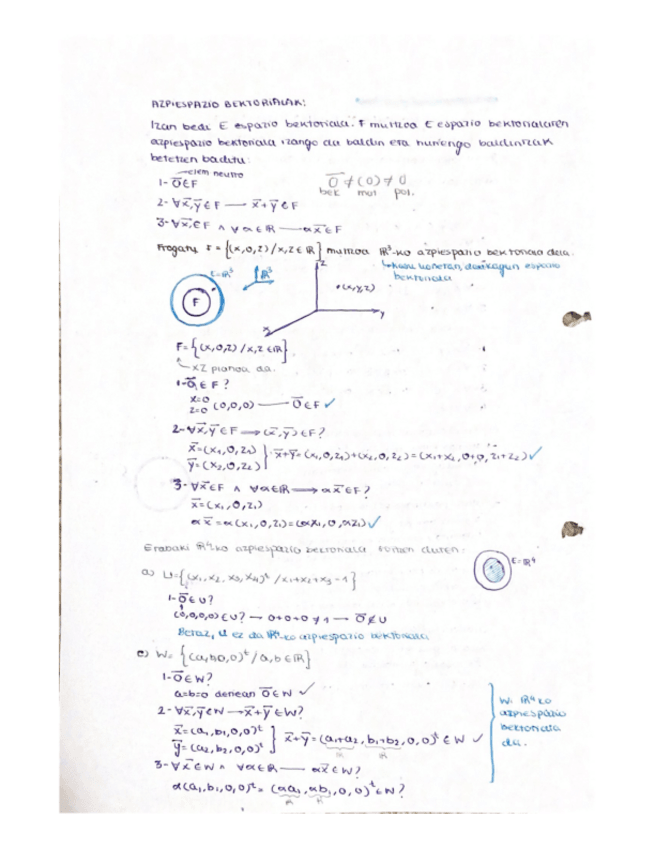 AZPIESPAZIO BEKTORIALAK:
Izan bedi E espazio bektoriala. F multzoa E espazio bektorialaren
azpiespazio bektoriala izango da baldin eta hurrengo baldintzak
betetzen baditu:
elem neutro
1- 0̅∈F
0̅ ≠ (0) ≠ 0
bek mul pol.
2- ∀x̅,y̅∈F → x̅+y̅∈F
3- ∀x̅∈F ∧ ∀α∈ℝ → αx̅∈F
Frogatu F={(x,0,z)/x,z∈ℝ} multzoa ℝ³-ko azpiespazio bektoriala dela.
kasu honetan daukagun espazio
bektoriala
E=ℝ³
ℝ³
F
z
•(x,y,z)
y
x
F={(x,0,z)/x,z∈ℝ}
XZ planoa da.
1- 0̅∈F?
x=0
z=0 (0,0,0) — 0̅∈F ✓
2- ∀x̅,y̅∈F → (x̅,y̅)∈F?
x̅=(x₁,0,z₁)
y̅=(x₂,0,z₂)
x̅+y̅=(x₁,0,z₁)+(x₂,0,z₂)=(x₁+x₂,0+0,z₁+z₂) ✓
3- ∀x̅∈F ∧ ∀α∈ℝ → αx̅∈F?
x̅=(x₁,0,z₁)
αx̅=α(x₁,0,z₁)=(αx₁,0,αz₁) ✓
Erabaki ℝ⁴ko azpiespazio bektoriala duten:
E=ℝ⁴
a) U={(x₁,x₂,x₃,x₄)ᵗ/x₁+x₂+x₃=1}
1- 0̅∈U?
(0,0,0,0)∈U? — 0+0+0≠1 — 0̅∉U
Beraz, U ez da ℝ⁴-ko azpiespazio bektoriala
c) W={(a,b,0,0)ᵗ/a,b∈ℝ}
1- 0̅∈W?
a=b=0 denean 0̅∈W ✓
2- ∀x̅,y̅∈W → x̅+y̅∈W?
x̅=(a₁,b₁,0,0)ᵗ
y̅=(a₂,b₂,0,0)ᵗ
x̅+y̅=(a₁+a₂,b₁+b₂,0,0)ᵗ∈W ✓
ℝ ℝ
3- ∀x̅∈W ∧ ∀α∈ℝ — αx̅∈W?
α(a₁,b₁,0,0)ᵗ=(αa₁,αb₁,0,0)ᵗ∈W?
ℝ ℝ
W: ℝ⁴ko
azpiespazio
bektoriala
da.